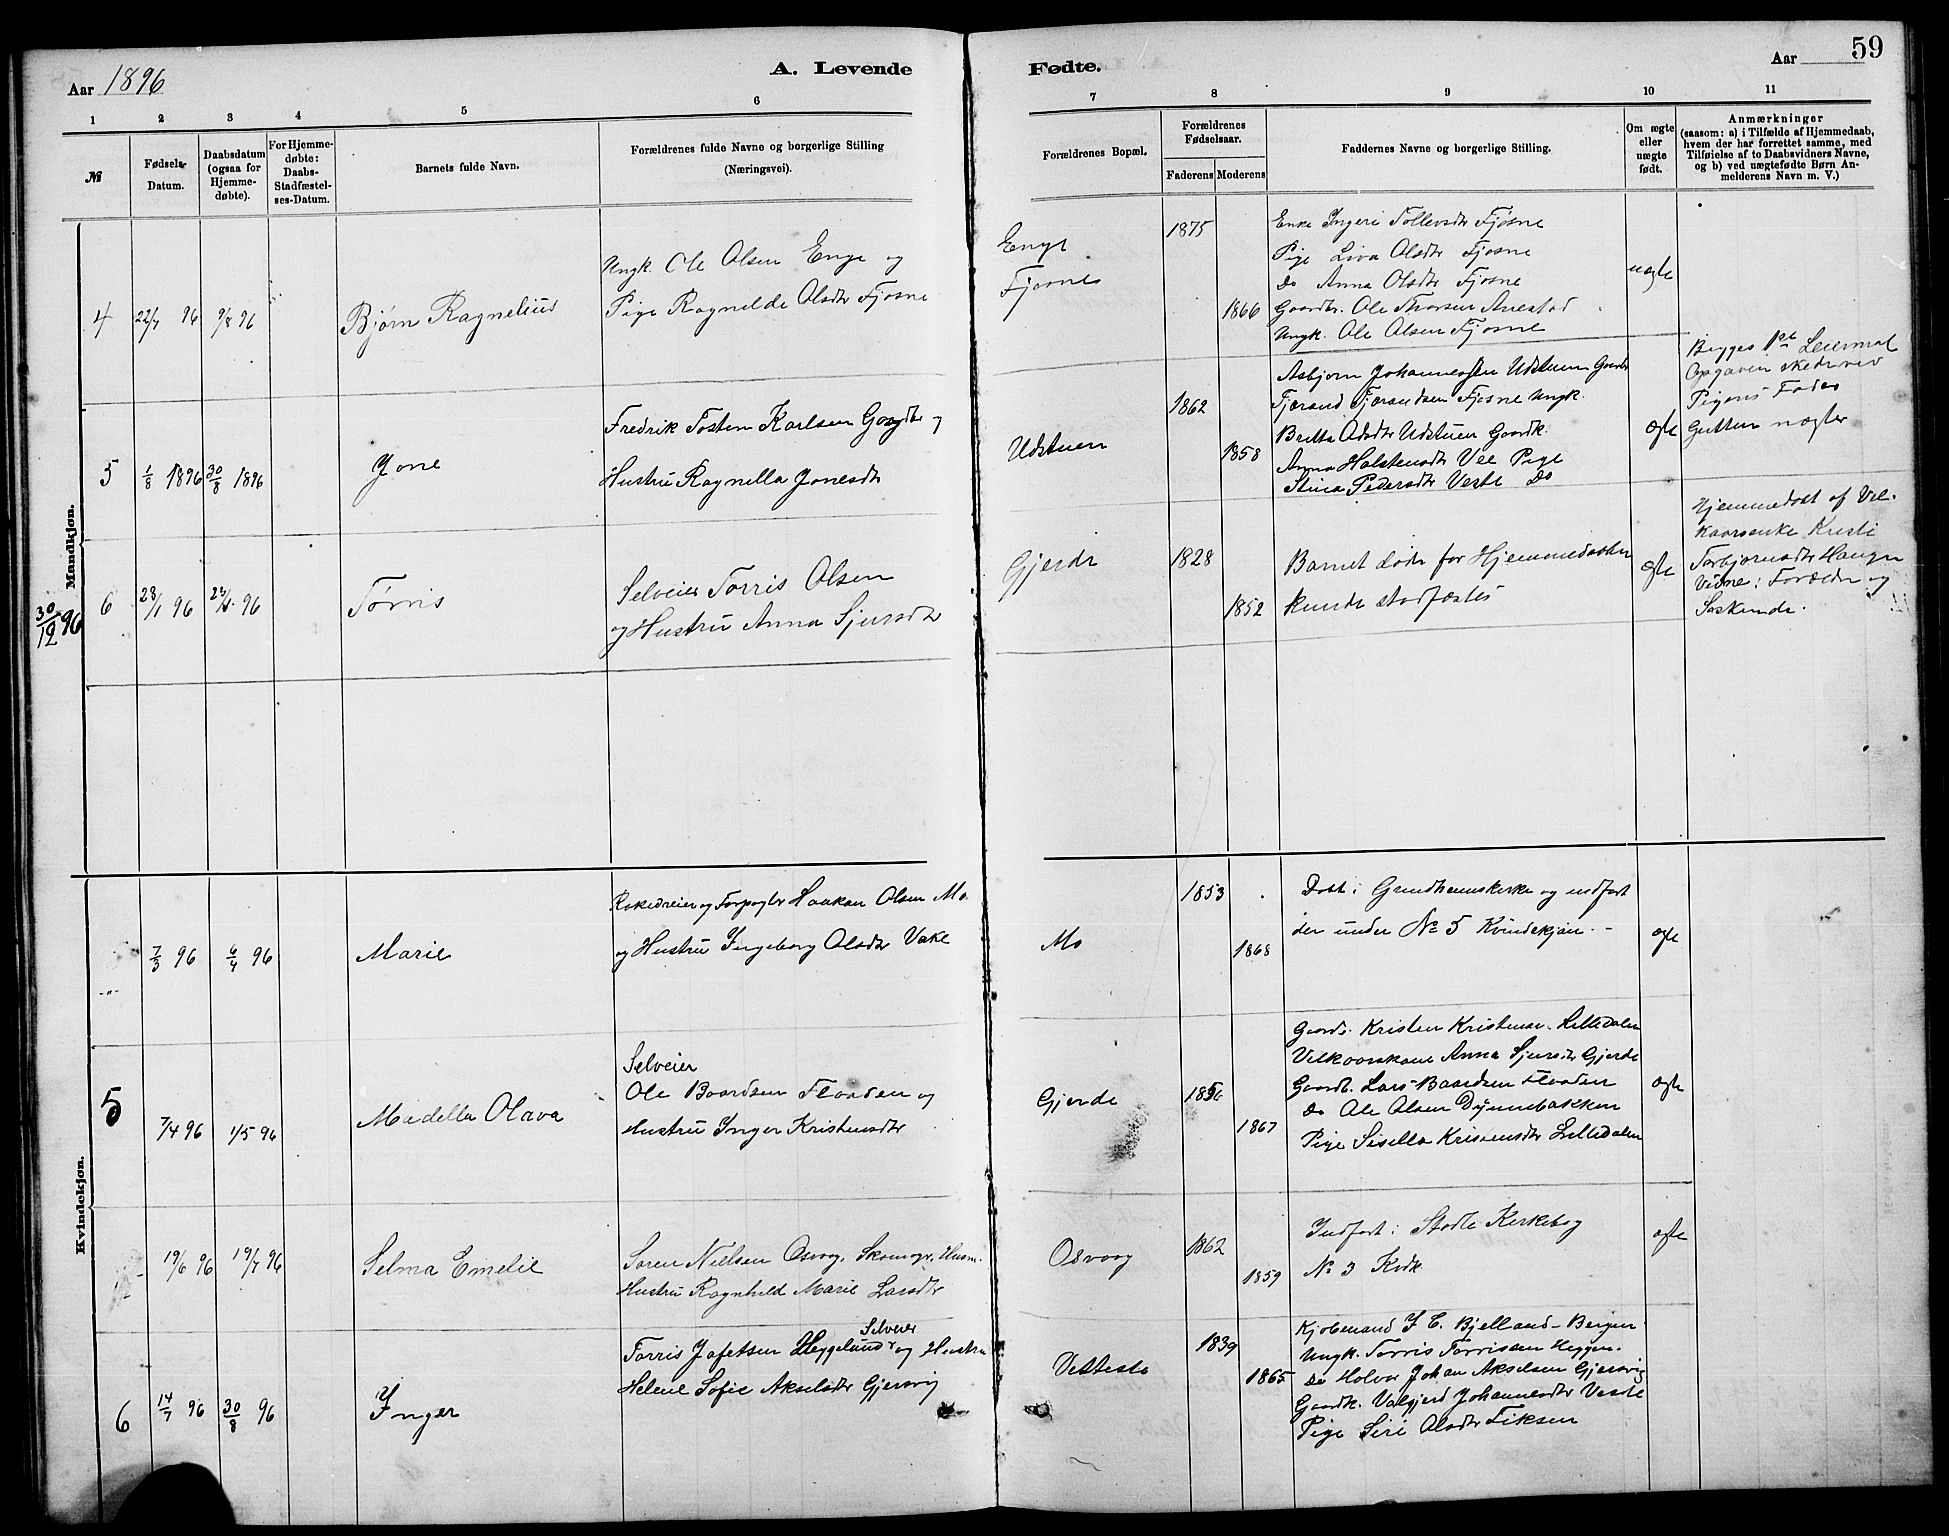 Aar 1896
A. Levende
Fødte.
Aar
59
1
2
3
4
5
6
7
8
9
10
11
№
Fødsels-
Datum.
Daabsdatum
(ogsaa for
Hjemme-
døbte).
For Hjemme-
døbte:
Daabs-
Stadfæstel-
ses-Datum.
Barnets fulde Navn.
Forældrenes fulde Navne og borgerlige Stilling
(Næringsvei).
Forældrenes Bopæl.
Forældrenes
Fødselsaar.
Faderens
Moderens
Faddernes Navne og borgerlige Stilling.
Om ægte
eller
uægte
født.
Anmærkninger
(saasom: a) i Tilfælde af Hjemmedaab,
hvem der har forrettet samme, med
Tilføielse af to Daabsvidners Navne,
og b) ved uægtefødte Børn An-
melderens Navn m. V.)
Mandkjøn.
4
22/7 96
9/8 96
Bjørn Ragnelius
Ungk. Ole Olsen Enge og
Pige Ragnelde Olsdtr Fjosne
Enge
Fjosne
1875
1866
Enke Ingeri Tollevsdtr Fjøsne
Pige Liva Olsdtr Fjosne
Do Anna Olsdtr Fjosne
Gaardbr. Ole Thorsen Anestad
Ungk. Ole Olsen Fjosne
uægte
Begges 1ste Leiermal
Opgaven skedte ved
Pigens Fader
Gutten nægter
5
1/8 1896
30/8 1896
Jone
Fredrik Tosten Karlsen Gaardbr og
Hustru Ragnella Jonesdtr
Udstuen
1862
1858
Asbjørn Johannessen Udstuen Gaardbr
Tjerand Tjerandsen Fjosne Ungk.
Britta Olsdtr Udstuen Gaardk.
Anna Halstensdtr Vee Pige
Stina Pedersdtr Veste Do
ægte
30/12 96
6
28/1 96
96
Tørris
Selveier Tørris Olsen
og Hustru Anna Sjursdtr
Gjerde
1828
1852
Barnet døde før Hjemmedaaben
kunde stadfæstes
ægte
Hjemmedøbt af Vel-
kaarsenke Kristi
Torbjørnsdtr Haugen
Vidne: Forældre og
Søskende.
Kvindekjøn.
-"-
7/3 96
6/4 96
Marie
og Forpagter Haakon Olsen Mo
og Hustru Ingeborg Olsdtr Vake
Mo
1853
1868
Døbt i Grindheimskirke og indført
der under № 5 Kvindekjøn. -
ægte
5
7/4 96
1/5 96
Madella Olava
Selveier
Ole Baardsen Flaaden og
Hustru Inger Kristensdtr
Gjerde
1856
1867
Gaardb. Kristen Kristense. Lilledalen
Velkaarskone Anna Sjursdtr Gjerde
Gaardb. Lars Baardsen Flaaden
Do Ole Olsen Dynnebakken
Pige Sisella Kristensdtr Lilledalen
ægte
19/6 96
19/7 96
Selma Emelie
Søren Nielsen Osvog, Skomagr, Husm.
Hustru Ragnhild Marie Larsdtr
Osvaag
1862
1859
Indført i Stødle Kirkebog
№ 3 Kvdk
ægte
6
14/7 96
30/8 96
Inger
Selveier
Tørris Jofetsen Heggelund og Hustru
Helene Sofie Akselsdtr Gjersvig
Vestestø
1839
1865
Kjøbmand J C. Bjelland - Bergen
Ungk. Tørris Tørrissen Heggen.
Do Holvor Johan Akselsen Gjersvig
Gaardk. Valgjerd Johannesdtr Veste
Pige Siri Olsdtr Fiksen